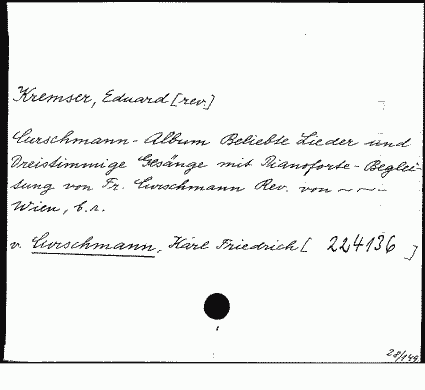 Kremser, Eduard [rev.]
Curschmann-Album Beliebte Lieder und
Dreistimmige Gesänge mit Pianoforte-Beglei-
tung von Fr. Curschmann Rev. von ~~~
Wien, b. r.
v. Curschmann, Karl Friedrich [ 224136 ]
28/149